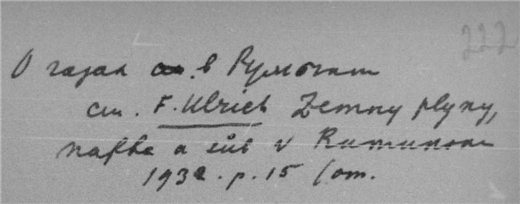 222
О газах в Румынии
см. F. Ulrich Zemny plyny,
nafta a sůl v Rumunsku
1932. p. 15